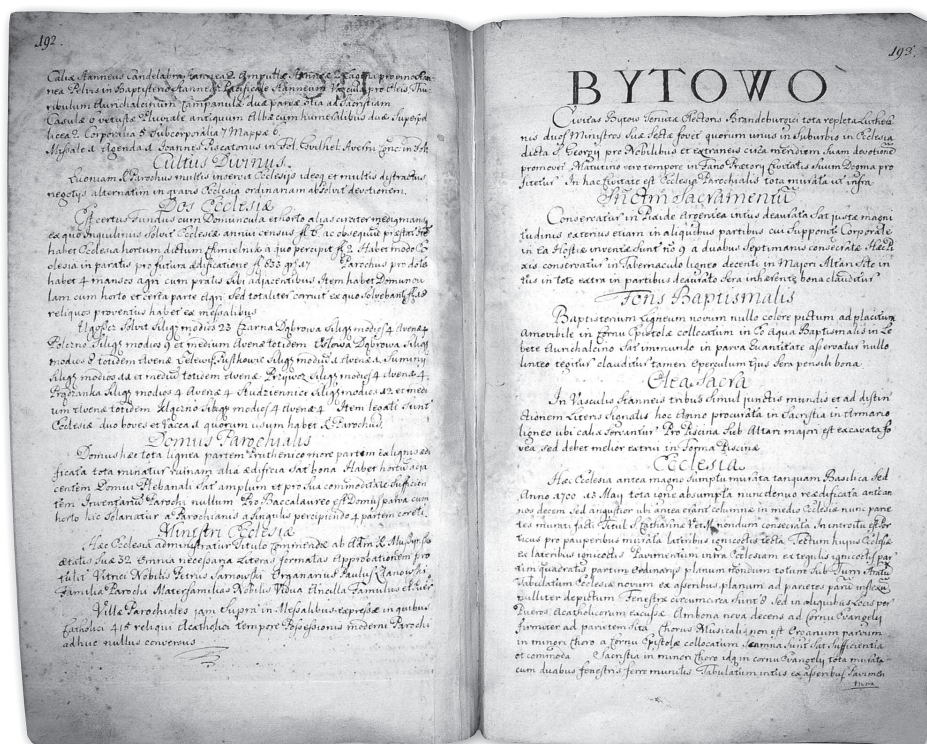 192.
Calix Stanneus Candelabra stannea 2 Ampullæ Stanneæ 2 Lagena pro vino Stan-
nea Pelvis in Baptisterio Stannea Pacificale Stanneum Vascula pro Oleis Thu-
ribulum Aurichalceum Campanulæ duæ parvæ
Casulæ vetustæ Pluviale antiquum Albæ cum humeralibus duæ Superpel
licea 2 Corporalia 5 Subcorporalia 7 Mappæ 6.
Missale 2 Agenda 2 Joannis in Fol.
Cultus Divinus
Quoniam R. Parochus multis inservit Ecclesijs ideoq et multis distractus
negotijs alternatim in quavis Ecclesia ordinariam absolvit devotionem.
Dos Ecclesiæ
Est certus fundus cum Domuncula et horto
ex quo Inquilinus solvit Ecclesiæ annui census fl 6. ac obsequia præstat Item
habet Ecclesia hortum dictum Chmielnik a quo percipit fl 2 Habet modo Ec
clesia in paratis pro futura ædificatione fl 833 Parochus pro dote
habet 4 mansos agri cum pratis sibi adjacentibus Item habet Domuncu
lam cum horto et certa parte Agri sed totaliter corruit ex quo solvebant
reliquos proventus habet ex messalibus
Ugoszcz solvit Siligs modios 23 Czarna Dąbrowa Siligs modios 4 Avenæ 4
Siligs modios 9 et medium Avenæ totidem Osława Dąbrowa Siligs
modios 8 totidem Avenæ Siligs modios 2 Avenæ 2
Siligs modios et mediū totidem Avenæ Siligs modios 4 Avenæ 4.
Prądzonka Siligs modios 4 Avenæ 4 Studzienice Siligs modios 12 et medi
um Avenæ totidem Kłączno Siligs modios 4 Avenæ 4 Item legati sunt
Ecclesiæ duo boves et Vacca 1 quorum usum habet R. Parochus.
Domus Parochialis
Domus hæc tota lignea partim Pruthenico more partim ex lignis ædi
ficata tota minatur ruinam alia ædificia sat bona Habet hortū adja
centem Domui Plebanali sat amplum et pro sua commoditate sufficien
tem Inventariū Parochi nullum Pro Baccalaureo est Domus parva cum
horto hic Solariatur a Parochianis a singulis percipiendo 4 partem coreti.
Ministri Ecclesiæ
Hæc Ecclesia administratur titulo Commendæ ab
ætatis suæ 32 Omnia necessaria Literas formatas Approbationem pro
tulit Vitrici Nobilis Petrus Sarnowski Organarius Paulus
Familia Parochi Materfamilias Nobilis Vidua Ancilla Famulus et
Villæ Parochiales jam supra in Messalibus expressæ in quibus
Catholici 416 reliqui Acatholici tempore Possessionis moderni Parochi
adhuc nullus conversus
193.
BYTOWO
Civitas Bytow Serenissimi Electoris Brandeburgici tota repleta Luthera
nis duos Ministros suæ Sectæ fovet quorum unus in Suburbio in Ecclesia
dicta S. Georgij pro Nobilibus et extraneis circa meridiem suam devotionē
promovet Matutino vero tempore in Fano Prætorij Civitatis suum Dogma pro
fitetur In hac Civitate est Ecclesia Parochialis tota murata ut infra
Smum Sacramentū
Conservatur in Pixide Argentea intus deaurata sat justæ magni
tudinis exterius etiam in aliquibus partibus cui supponitur Corporale
in ea Hostiæ inventæ sunt nō 9 a duabus Septimanis consecratæ Hæc Pi
xis conservatur in Tabernaculo ligneo decenti in Majori Altari sito in
tus in toto extra in partibus deaurato Sera inhærente bona clauditur
Fons Baptismalis
Baptisterium Ligneum novum nullo colore pictum ad placitum
Amovibile in Cornu Epistolæ collocatum in eo Aqua Baptismalis in Le
bete Aurichalcino sat immundo in parva quantitate asservatur nullo
linteo tegitur clauditur tamen operculum ejus Sera pensili bona
Olea Sacra
In Vasculis Stanneis tribus simul junctis mundis et ad distin
ctionem Literis signatis hoc Anno procurata in Sacristia in Armario
ligneo ubi calix servantur Pro Piscina Sub Altari majori est excavata fo
vea sed debet melior extrui in forma Piscinæ
Ecclesia
Hæc Ecclesia antea magno sumptu murata tanquam Basilica sed
Anno 1700 13 May tota igne absumpta nunc denuo reædificata ante an
nos decem sed angustior ubi antea erant columnæ in medio Ecclesiæ nunc parie
tes murati facti Tituli S. Catharinæ nondum consecrata In introitu est por
ticus pro pauperibus murata lateribus ignicoctis tecta Tectum hujus Ecclesiæ
ex lateribus ignicoctis Pavimentum intra Ecclesiam ex tegulis ignicoctis par
tim quadratis partim ordinarijs planum nondum totum
Tabulatum Ecclesiæ novum ex asseribus planum ad parietes parū inflexū
pulliter depictum Fenestræ circumcirca sunt 8 sed in aliquibus locis per
Pueros Acatholicorum excussæ Ambona nova decens ad Cornu Evangelij
firmiter ad parietem sita Chorus Musicalis non est Organum parvum
in minori choro a cornu Epistolæ collocatum Scamna sunt sat sufficientia
et commoda Sacristia in minori choro idq in cornu Evangelij tota murata
cum duabus fenestris ferro munitis Tabulatum intus ex asseribus Pavimen